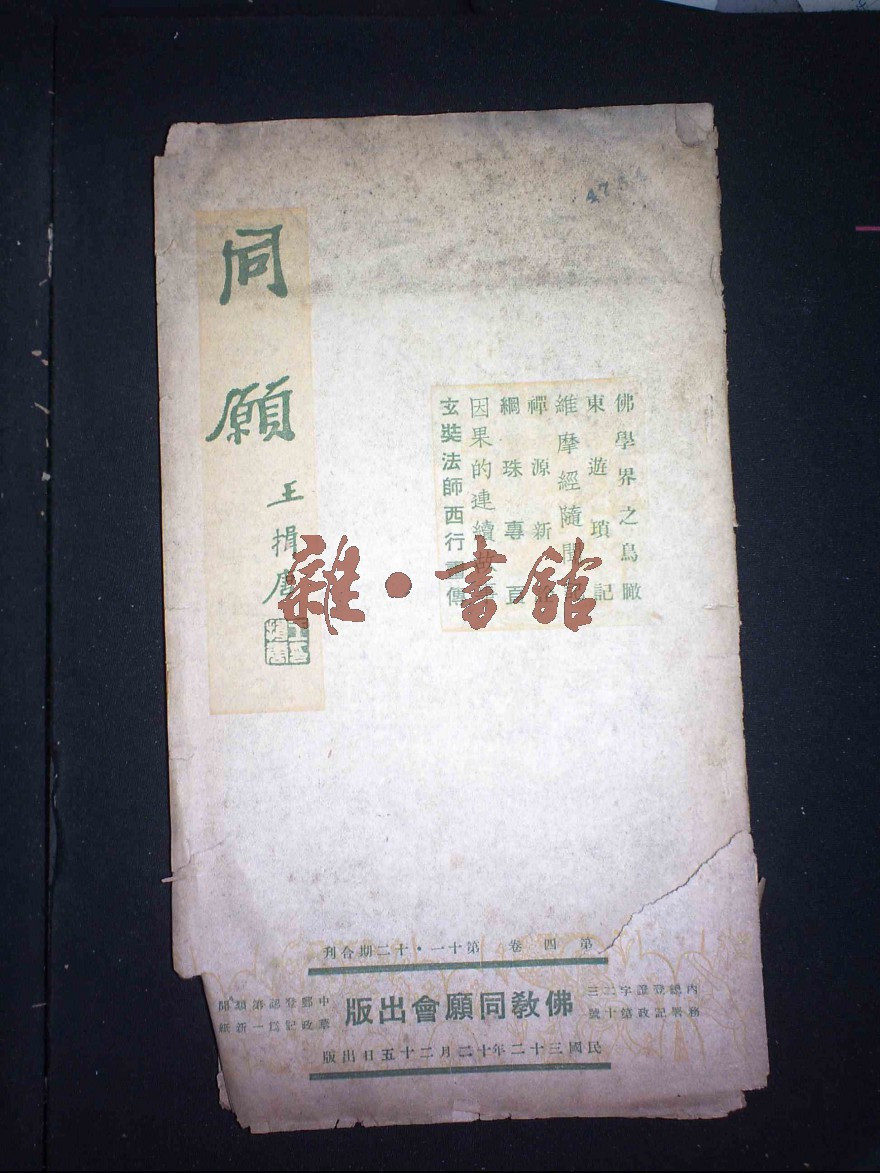 同願
王揖唐
佛學界之鳥瞰
東遊瑣記
維摩經隨聞
禪源新
網珠專頁
因果的連續
玄奘法師西行畫傳
雜·書館
第四卷 第十一·十二期合刊
內總登證字二三
務署記政第十號
佛教同願會出版
中郵登認第類聞
華政記為一新紙
民國三十二年十二月二十五日出版